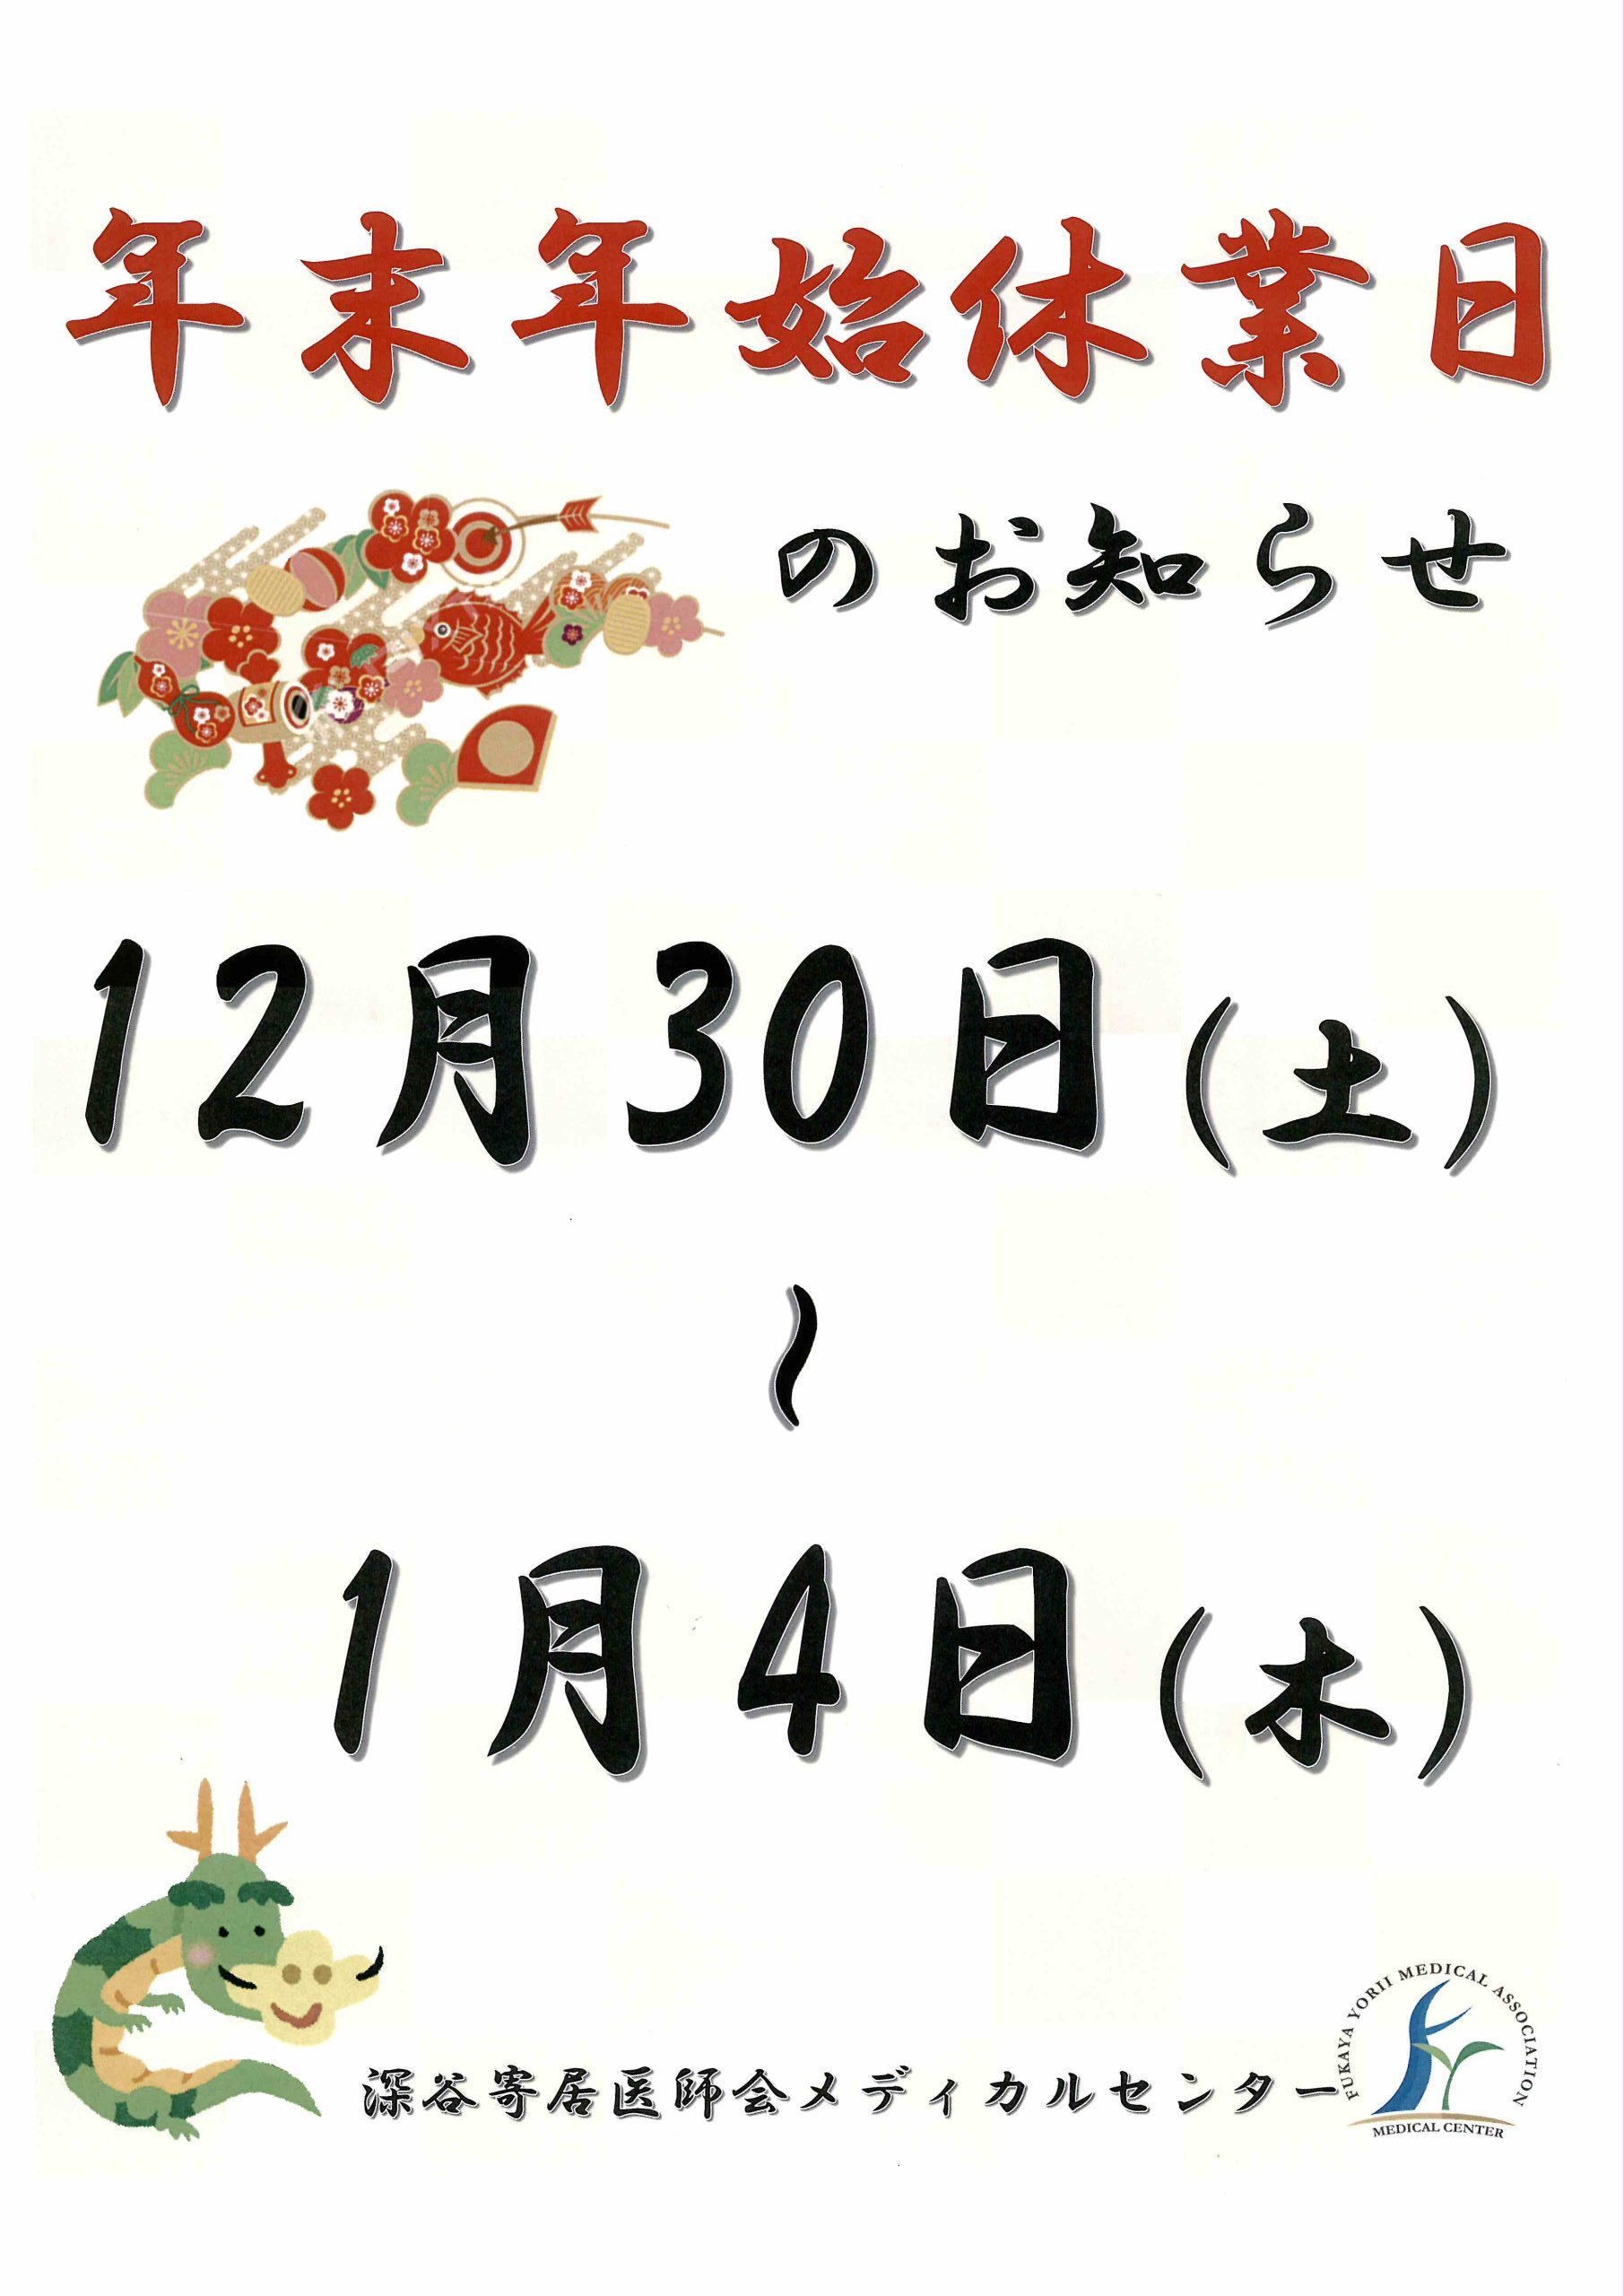 年末年始休業日
のお知らせ
12月30日(土)
~
1月4日(木)
深谷寄居医師会メディカルセンター
FUKAYA YORII MEDICAL ASSOCIATION
MEDICAL CENTER